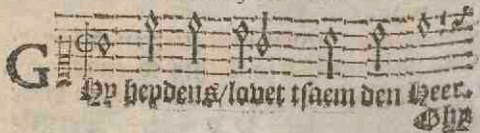 GHy heydens/lovet tsaem den Heer.
Ghy